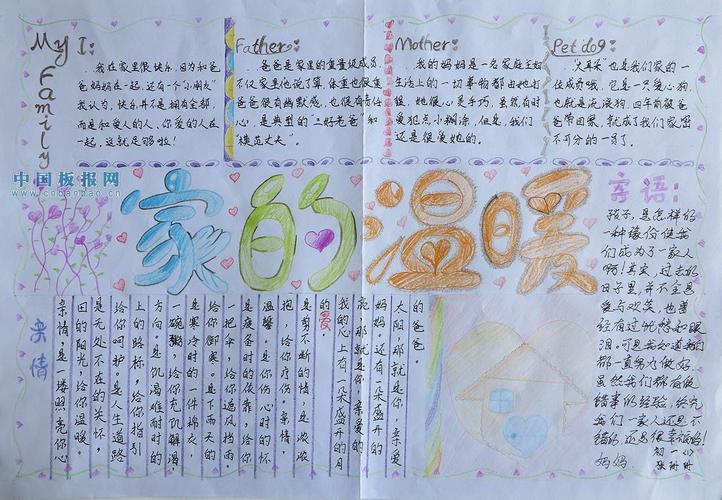 My Family
I:
...我在家里很快乐,因为和爸
爸妈妈在一起,还有一个"小朋友"
我认为,快乐并不是拥有全部,
而是和爱人的人,你爱的人在
一起,这就足够啦!
Father:
爸爸是家里的重量级成员,
不仅家里他说了算,体重也很重
爸爸很有幽默感,也很有责任
心,是典型的"三好老爸"和
"模范丈夫"。
Mother:
...我的妈妈是一名家庭主妇
生活上的一切事物都由她打
理,她很心灵手巧,虽然有时
爱犯点小糊涂,但是,我们
还是很爱她的。
Pet dog:
"大耳朵"也是我们家的一
位成员哦,它是一只爱心狗,
也就是流浪狗,四年前被爸
爸带回家,就成了我们家密
不可分的一员了。
中国板报网
www.cnbanbao.cn
家的温暖
寄语:
孩子,是怎样的
一种缘份使我
们成为了一家人
啊!其实,过去的
日子里,并不全是
爱与欢笑,也曾
经有过忧愁和眼
泪。可是我知道我们
都一直努力做好。
虽然我们都有做
错事的经验,终究
我们一家人还是不
错的,还是很幸福的!
妈妈
初一(1)
张
亲情
的爸爸。
太阳,那就是你,亲爱
妈妈,还有一朵盛开的
亮,那就是你,亲爱的
我的心上有一朵盛开的月
的爱。
是剪不断的情,是浓浓
抱,给你疗伤,亲情,
温馨,是你伤心时的怀
是疲惫时的依靠,给你
一把伞,给你遮风挡雨。
给你御寒。是下雨天的
是寒冷时的一件棉衣,
一碗粥,给你充饥解渴,
方向。是饥渴难耐时的
上的路标,给你指引
给你呵护,是人生道路
是无处不在的关怀,
田的阳光,给你温暖。
亲情,是一缕照亮你心